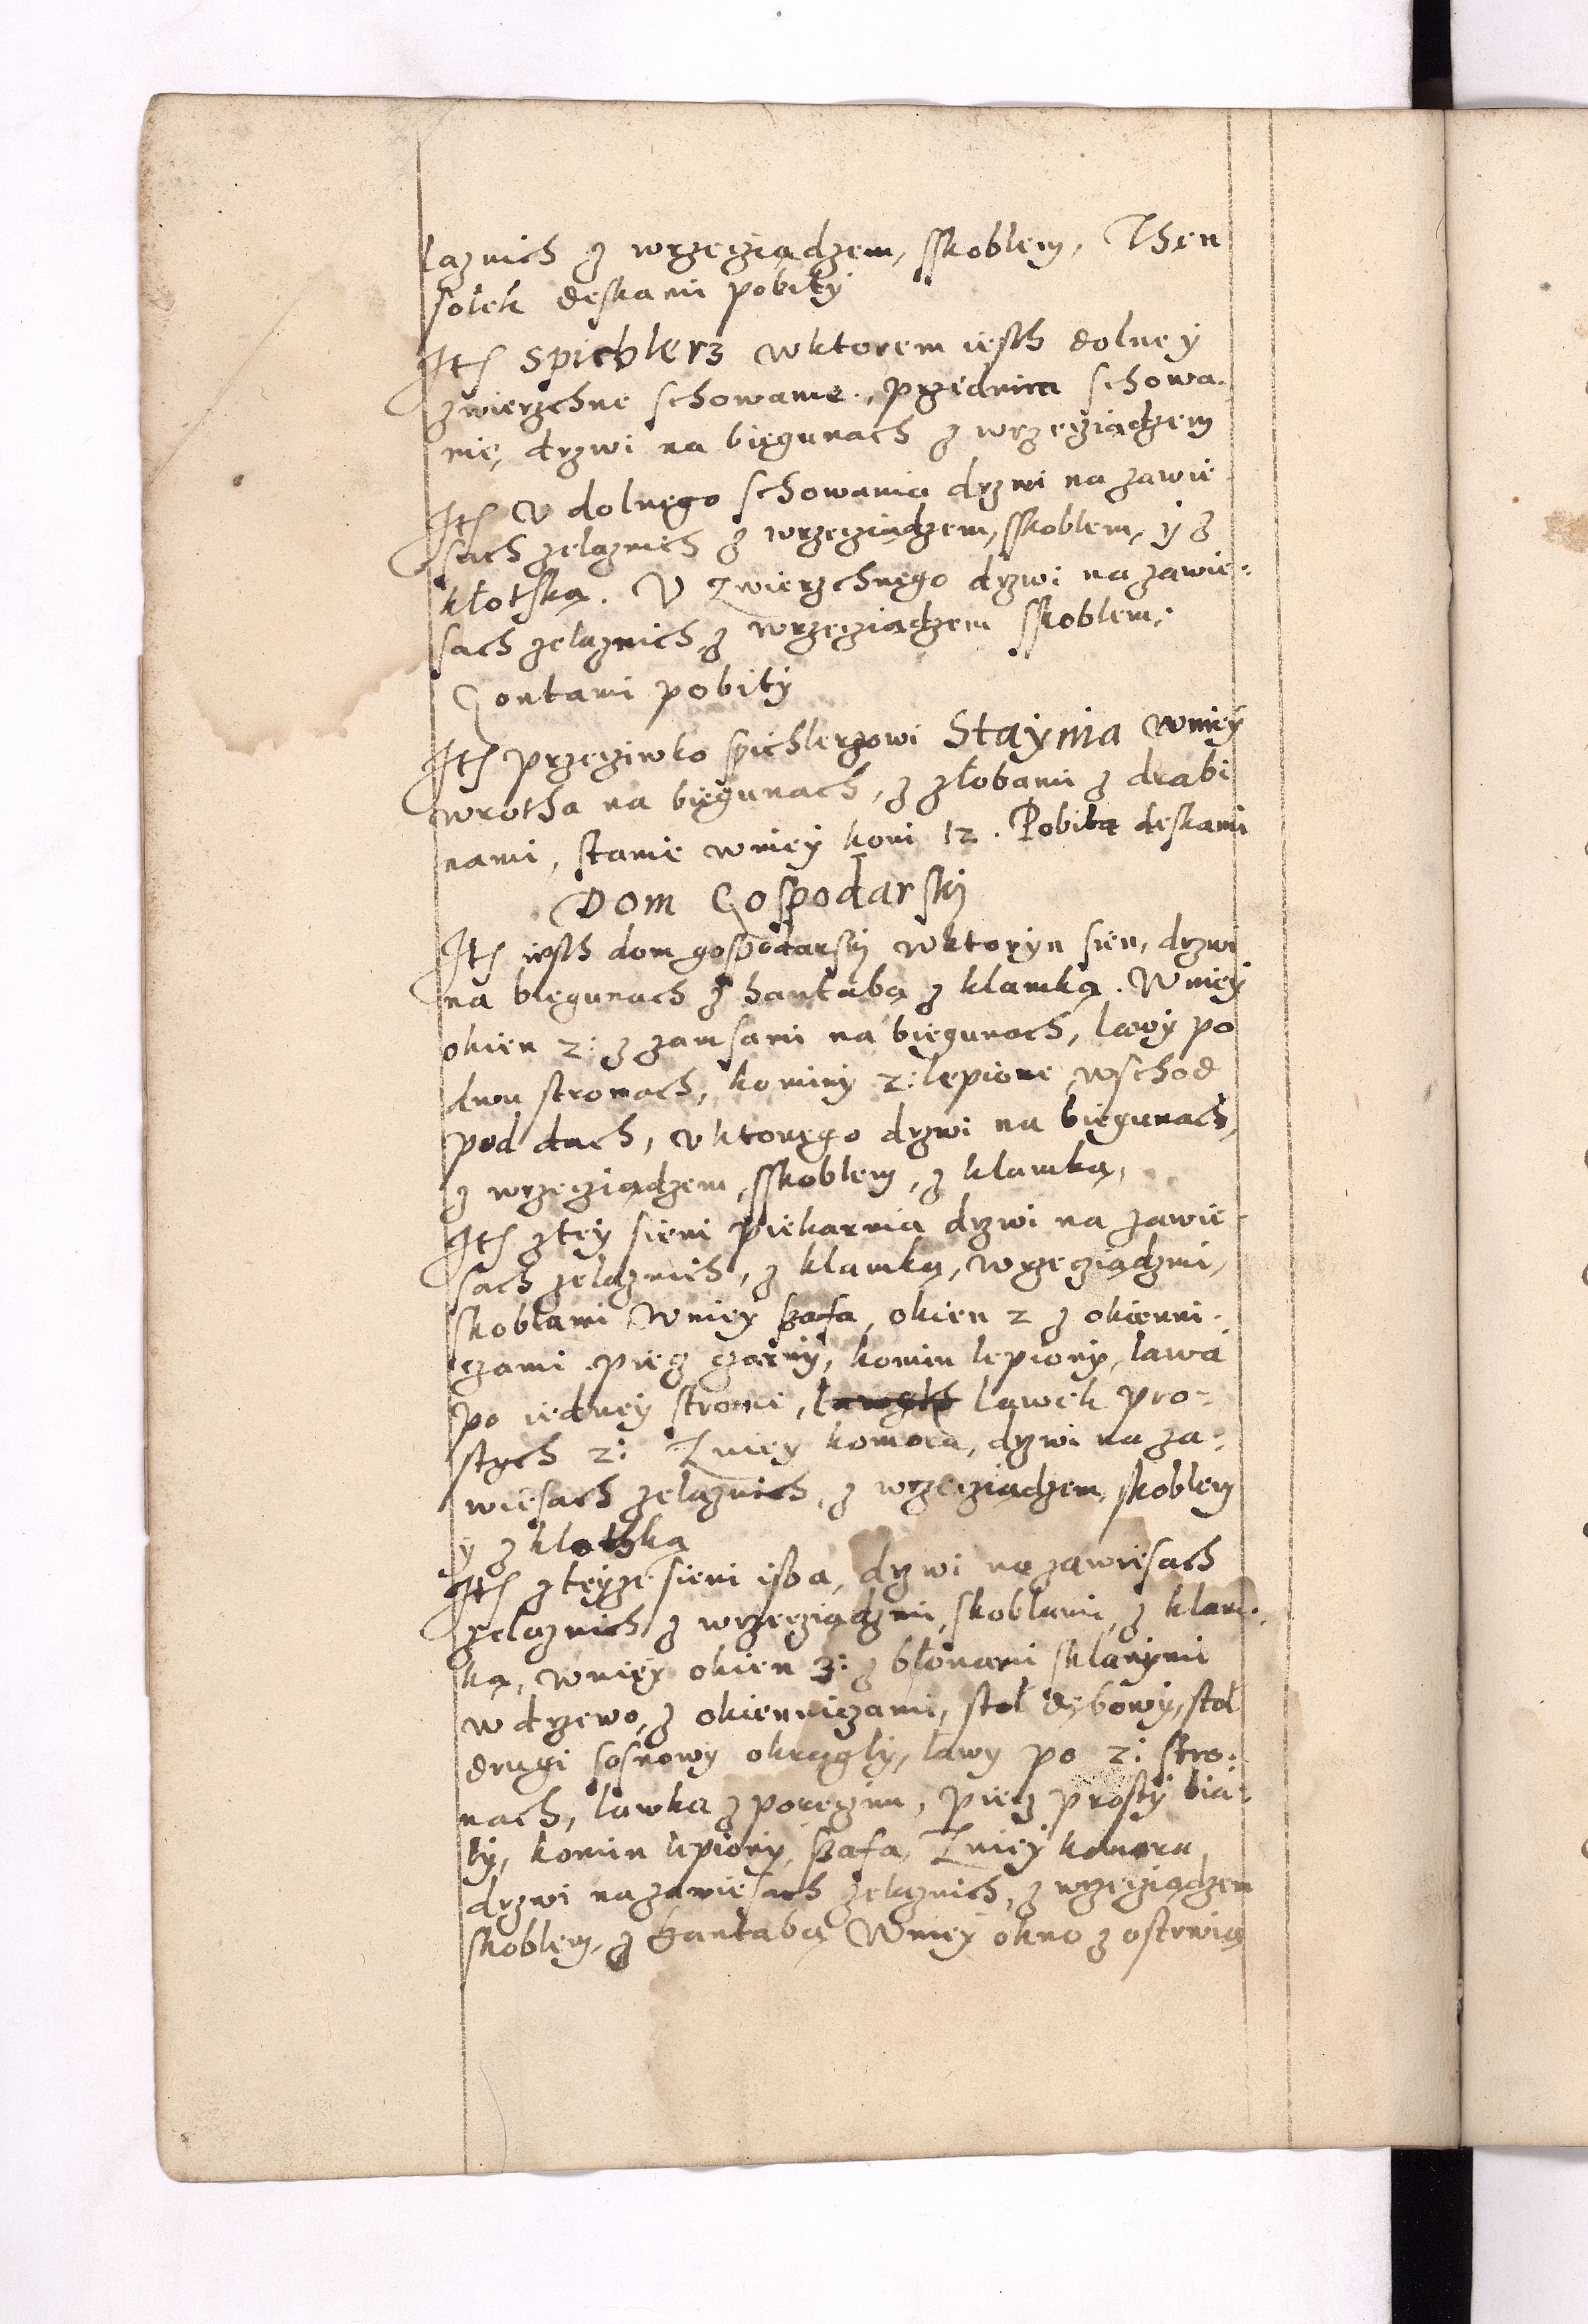 laznich z wrzecziądzem, sskoblem, Then
sołek deskami pobity
Itẽ Spichlerz wktorem iesth dolney
zwierzchne schowanie, przednira schowa-
nie, drzwi na biegunach z wrzecziądzem
Itẽ V dolnego schowania drzwi na zawie-
sach zelaznich z wrzecziądzem, sskoblem, y z
kłotką. V Zwierzchnego drzwi na zawie-
sach zelaznich z wrzecziądzem sskoblem,
Gontami pobity
Itẽ przecziwko spichlerzowi Staynia wniey
wrotha na biegunach, z zlobami z drabi
nami, stanie wniey koni 12. Pobita deskami
Dom Gospodarski
Itẽ iesth dom gospodarski wktorym sien, drzwi
na biegunach z hantabą z klamką. Wniey
okien 2: z zausami na biegunach, lawy po
dwu stronach, kominy 2: lepione wschod
pod dach, v ktorego drzwi na biegunach,
z wrzecziądzem, sskoblem, z klamką,
Itẽ z tey sieni piekarnia drzwi na zawie-
sach zelaznich, z klamką, wrzecziądzmi,
skoblami Wniey szafa, okien 2 z okienni-
czami piecz czarny, komin lepiony, lawa
po iedney stronie, lawek pro-
stych 2: Zniey komora, drzwi na za-
wiesach zelaznich, z wrzecziądzem, skoblem
y z klothką
Itẽ z teyze sieni isba, drzwi na zawiesach
zelaznich z wrzecziądzmi, skoblami, z klam-
ką, wniey okien 3: z błonami sklanymi
w drzewo, z okienniczami, stoł dębowy, stoł
drugi sosnowy okrągły, lawy po 2: stro-
nach, lawka z poręczim, piecz prosty bia-
ły, komin lepiony, szafa, Zniey komora
drzwi na zawiesach zelaznich, z wrzecziądzem
skoblem, z hantabą Wniey okno z ostrwią